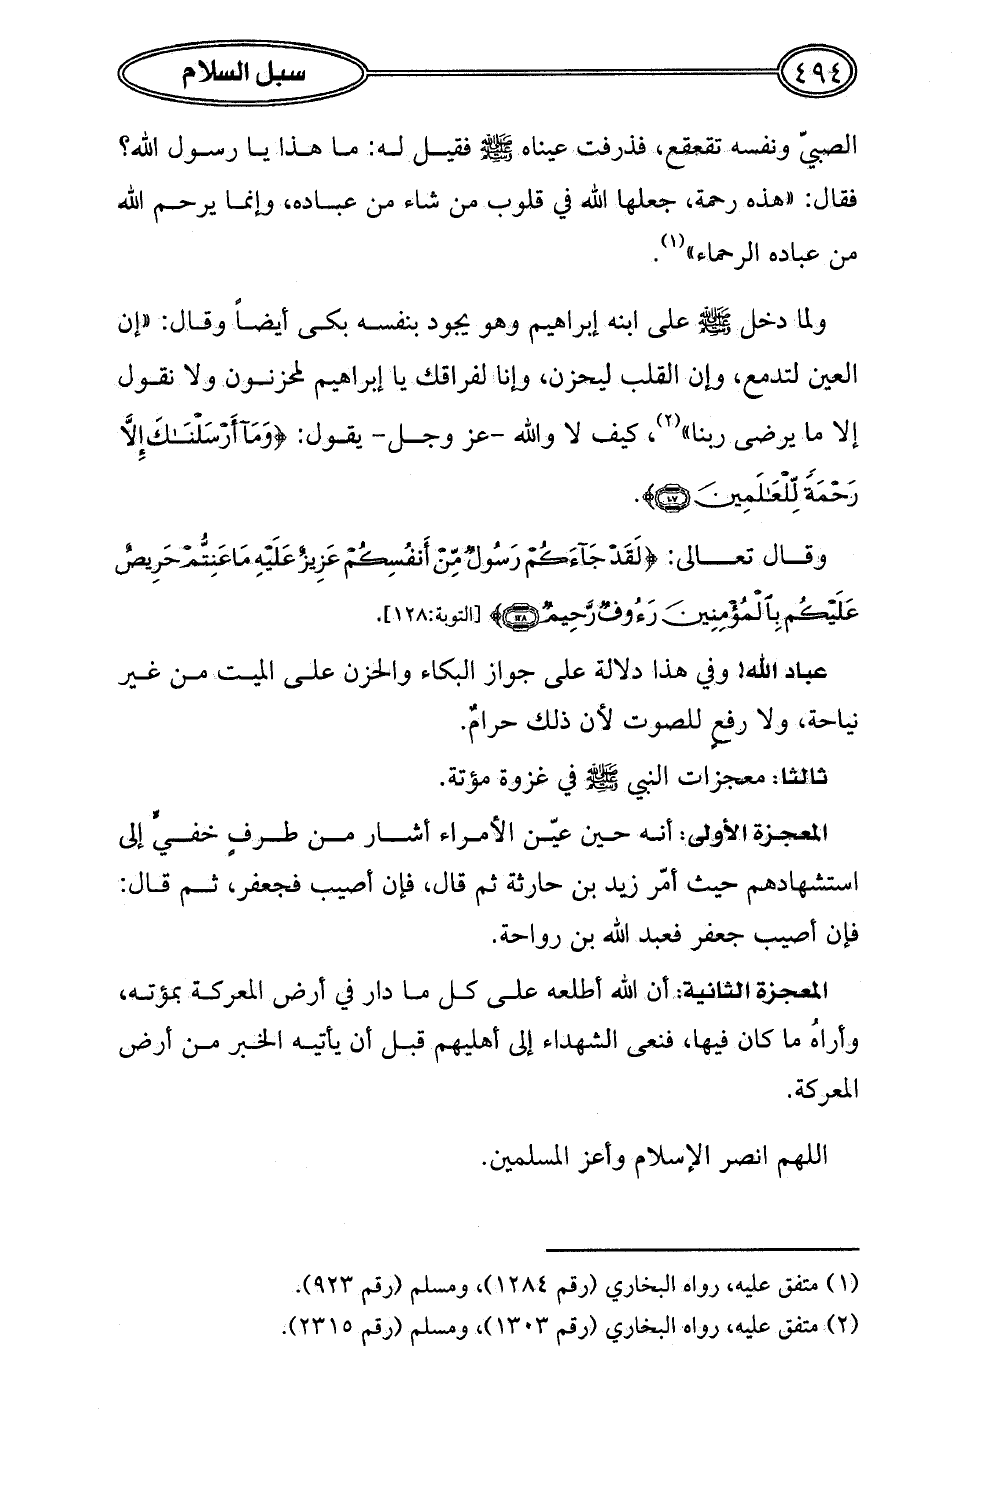 ٤٩٤
سبل السلام
الصبيّ ونفسه تقعقع، فذرفت عيناه ﷺ فقيل له: ما هذا يا رسول الله؟
فقال: «هذه رحمة، جعلها الله في قلوب من شاء من عباده، وإنما يرحم الله
من عباده الرحماء»(١).
ولما دخل ﷺ على ابنه إبراهيم وهو يجود بنفسه بكى أيضاً وقال: «إن
العين لتدمع، وإن القلب ليحزن، وإنا لفراقك يا إبراهيم لمحزنون ولا نقول
إلا ما يرضى ربنا»(٢)، كيف لا والله -عز وجل- يقول: ﴿وَمَآ أَرْسَلْنَـٰكَ إِلَّا
رَحْمَةً لِّلْعَـٰلَمِينَ ١٠٧﴾.
وقال تعالى: ﴿لَقَدْ جَآءَكُمْ رَسُولٌ مِّنْ أَنفُسِكُمْ عَزِيزٌ عَلَيْهِ مَا عَنِتُّمْ حَرِيصٌ
عَلَيْكُم بِٱلْمُؤْمِنِينَ رَءُوفٌ رَّحِيمٌ ١٢٨﴾ [التوبة:١٢٨].
عباد الله! وفي هذا دلالة على جواز البكاء والحزن على الميت من غير
نياحة، ولا رفعٍ للصوت لأن ذلك حرامٌ.
ثالثا: معجزات النبي ﷺ في غزوة مؤتة.
المعجزة الأولى: أنه حين عيّن الأمراء أشار من طرفٍ خفيٍّ إلى
استشهادهم حيث أمّر زيد بن حارثة ثم قال، فإن أصيب فجعفر، ثم قال:
فإن أصيب جعفر فعبد الله بن رواحة.
المعجزة الثانية: أن الله أطلعه على كل ما دار في أرض المعركة بمؤته،
وأراهُ ما كان فيها، فنعى الشهداء إلى أهليهم قبل أن يأتيه الخبر من أرض
المعركة.
اللهم انصر الإسلام وأعز المسلمين.
(١) متفق عليه، رواه البخاري (رقم ١٢٨٤)، ومسلم (رقم ٩٢٣).
(٢) متفق عليه، رواه البخاري (رقم ١٣٠٣)، ومسلم (رقم ٢٣١٥).